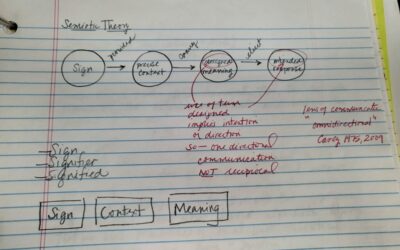 Semiotic Theory
provided
convey
elicit
Sign
precise
context
designed
meaning
intended
response
use of term
designed
implies intention
or direction
so — one directional
communication
NOT reciprocal
lens of communicate
"omnidirectional"
Carey 1975, 2009
— Sign
— Signifier
— Signified
Sign
Context
Meaning